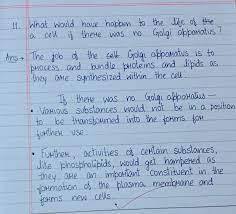 11. What would have happen to the life of the
a cell if there was no Golgi apparatus?
Ans→ The job of the cell Golgi apparatus is to
process and bundle proteins and lipids as
they are synthesized within the cell.
If there was no Golgi apparatus—
• Various substances would not be in a position
to be transformed into the forms for
further use.
• Further, activities of certain substances,
like phospholipids, would get hampered as
they are an important constituent in the
formation of the plasma membrane and
forms new cells.